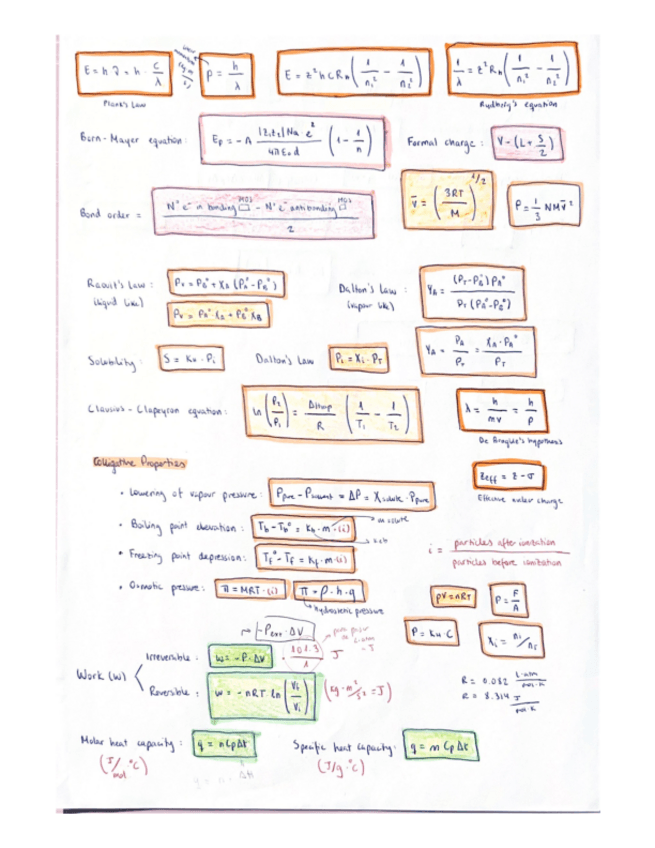 E = h ν = h · c/λ
p = h/λ
E = z² h c R_H (1/n₁² - 1/n₂²)
1/λ = z² R_H (1/n₁² - 1/n₂²)
Plank's Law
Rydberg's equation
Born-Mayer equation: E_p = -A |z₁z₂| Na · e² / 4πε₀d (1 - 1/n)
Formal charge: V - (L + S/2)
v̄ = (3RT/M)^1/2
P = 1/3 NM v̄²
Bond order = N° e⁻ n bonding MOS - N° e⁻ antibonding MOS / 2
Raoult's Law: P_v = P_B° + X_A (P_A° - P_B°)
(liquid like)
P_v = P_A° X_A + P_B° X_B
Dalton's Law: Y_A = (P_T - P_B°) P_A° / P_T (P_A° - P_B°)
(vapour like)
Y_A = P_A/P_T = X_A · P_A° / P_T
Solubility: S = K_H · P_i
Dalton's Law P_i = X_i · P_T
Clausius-Clapeyron equation: ln (P₂/P₁) = ΔHvap/R (1/T₁ - 1/T₂)
λ = h/mv = h/p
De Broglie's hypothesis
Colligative Properties
Zeff = Z - σ
Effective nuclear charge
• Lowering of vapour pressure: P pure - P solvent = ΔP = X solute · P pure
• Boiling point elevation: T_b - T_b° = K_b · m · (i)
• Freezing point depression: T_f° - T_f = K_f · m · (i)
i = particles after ionization / particles before ionization
• Osmotic pressure: π = MRT · (i)
π = ρ · h · g
hydrostatic pressure
pV = nRT
P = F/A
P = K_H · C
X_i = n_i/n_T
-P_ext · ΔV
101.3 J
Work (W)
Irreversible: w = -P · ΔV
Reversible: w = -nRT · ln (V_f/V_i)
(Kg · m²/s² = J)
R = 0.082 L·atm/mol·K
R = 8.314 J/mol·K
Molar heat capacity: q = n Cp Δt
(J/mol °C)
Specific heat capacity: q = m Cp Δt
(J/g · °C)